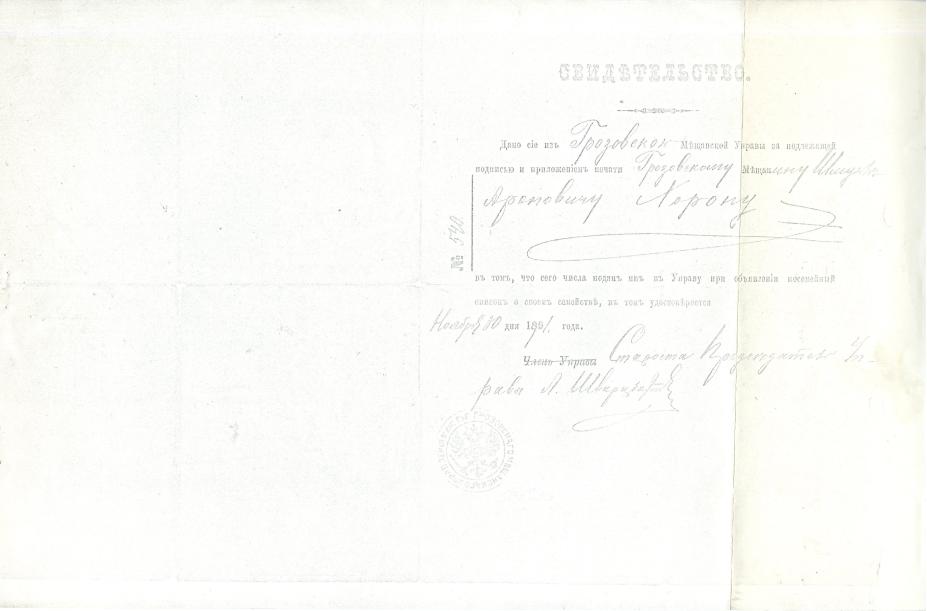 СВИДѢТЕЛЬСТВО.
Дано сіе изъ Грозовской Мѣщанской Управы за надлежащей
подписью и приложеніемъ печати Грозовскому Мѣщанину
Ароновичу Хорону
№ 540
въ томъ, что сего числа поданъ имъ въ Управу при объявленіи посемейный
списокъ о своемъ семействѣ, въ томъ удостовѣряется
Ноября 30 дня 1891 года.
Членъ Управы Староста Предсѣдатель Уп-
рава